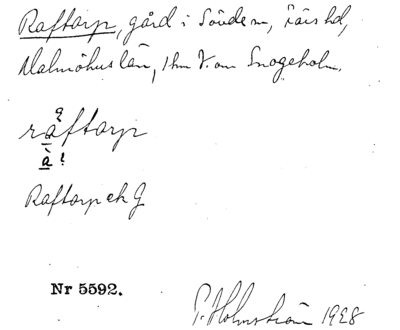 Raftorp, gård i Sövde sn, Färs hd,
Malmöhus län, 1 km V. om Snogeholm.
a
raftorp
à !
Raftorp ek G
Nr 5592.
P. Holmström 1928